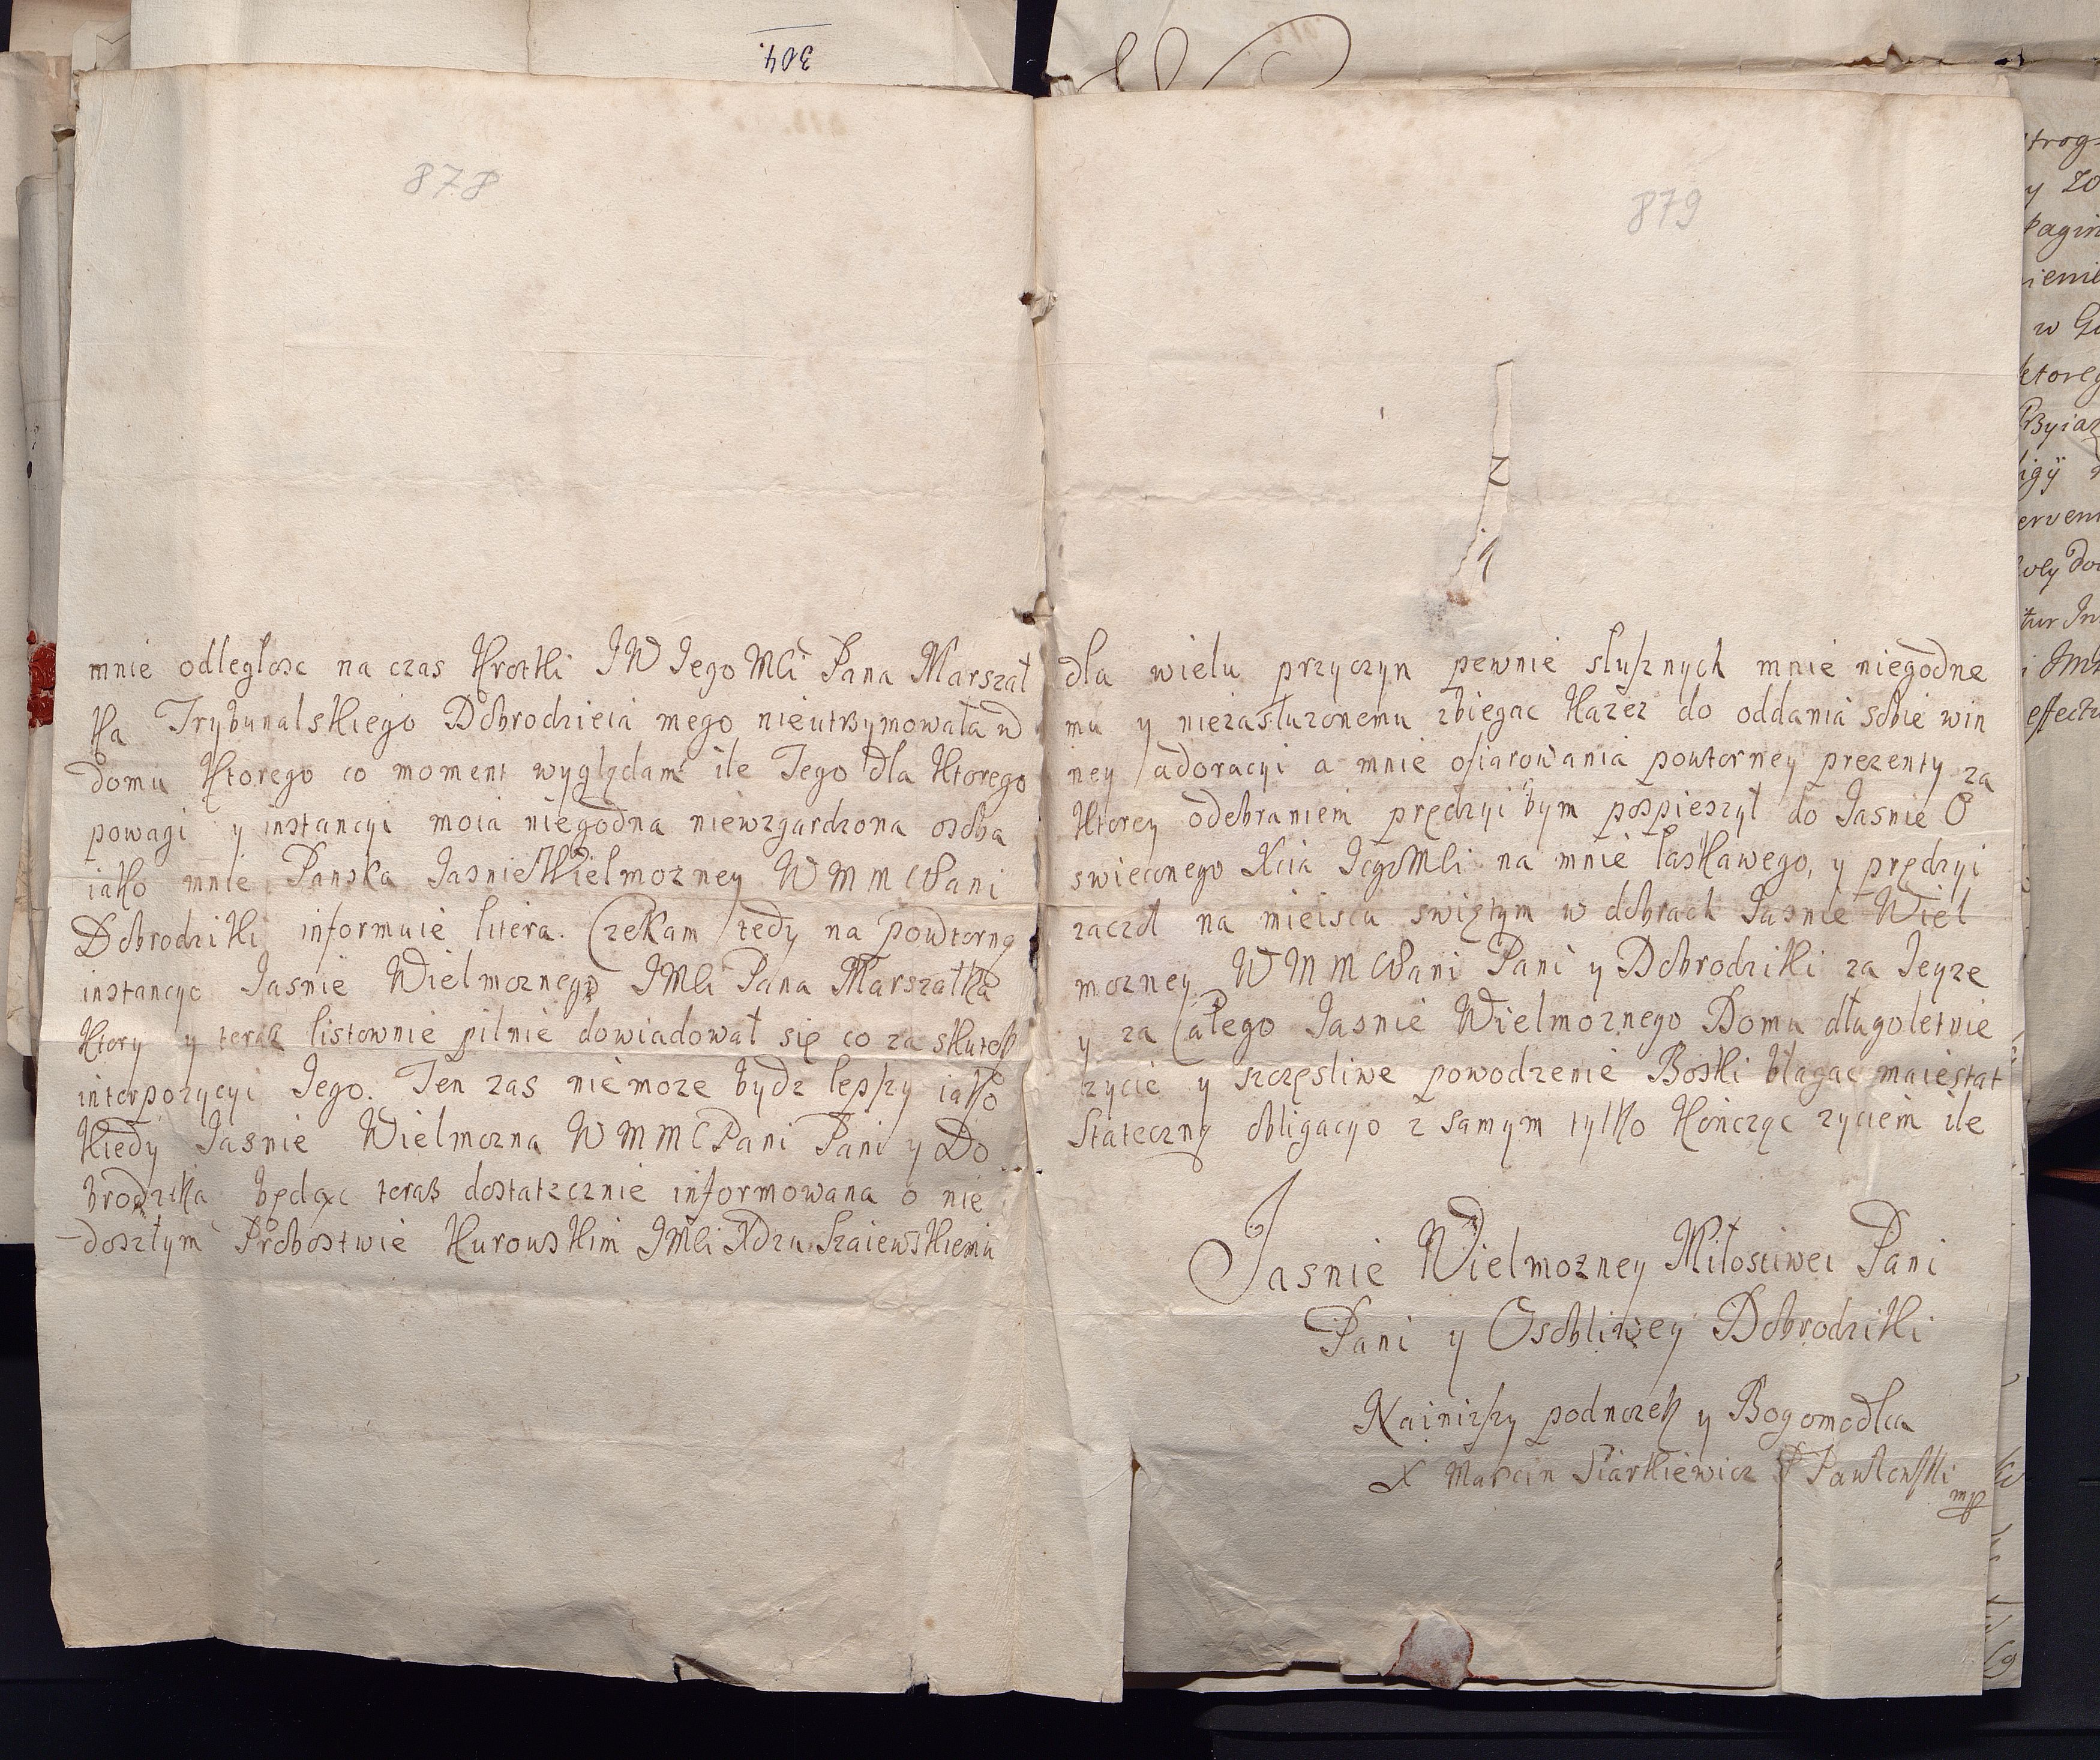 304.
878
mnie odległosc na czas Krotki JW Jego Mći Pana Marszał
ka Trybunalskiego Dobrodzieia mego nieutrzymowała w
domu Ktorego co moment wyglądam ile Jego dla Ktorego
powagi y instancyi moia niegodna niewzgardzona osoba
iako mnie Panska Jasnie Wielmozney W M M C Pani
Dobrodziki informuie litera. Czekam tedy na powtorną
instancyo Jasnie Wielmoznego JMći Pana Marszałka
Ktory y teraz listownie pilnie dowiadował się co za skutek
interpozycyi Jego. Ten zas nie moze bydz lepszy iako
Kiedy Jasnie Wielmozna W M M C Pani Pani y Do
brodzika będąc teraz dostatecznie informowana o nie
-doszłym Probostwie Kurowskim JMći Xdzu Szaiewskiemu
879
dla wielu przyczyn pewnie słusznych mnie niegodne
mu y niezasłuzonemu zbiegac Kazez do oddania sobie win
ney adoracyi a mnie ofiarowania powtorney prezenty za
Ktorey odebraniem prędzyi bym pospieszył do Jasnie O
swieconego Xcia JegoMći na mnie łaskawego, y prędzyi
zaczoł na mieiscu swiętym w dobrach Jasnie Wiel
mozney W M M C Pani Pani y Dobrodziki za Jeyze
y za Całego Jasnie Wielmoznego Domu długoletnie
zycie y szczęsliwe powodzenie Boski błagac maiestat
Stateczną obligacyo z samym tylko Kończąc zyciem ile
Jasnie Wielmozney Miłosciwei Pani
Pani y Osobliwey Dobrodziki
Nainizszy podnozek y Bogomodlca
X Marcin Piarkiewicz P Pawłowski
mp